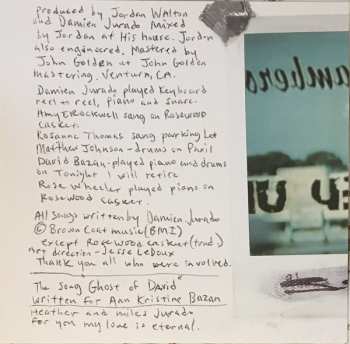 produced by Jordan Walton
and Damien Jurado. Mixed
by Jordan at His house. Jordan
also engineered. Mastered by
John Golden at John Golden
mastering. Ventura, CA.
Damien Jurado played Keyboard
reel to reel, Piano and snare.
Amy E Rockwell sang on Rosewood
casket.
Rosanne Thomas sang parking Lot
Matthew Johnson - drums on Paril
David Bazan - played piano and drums
on Tonight I will retire
Rose Wheeler played piano on
Rosewood casket.
All songs written by Damien Jurado
© Brown Coat music (BMI)
except Rosewood casket (trad)
Art direction - Jesse LeDoux
Thank you all who were involved.
The song Ghost of David
written for Ann Kristine Bazan
Heather and miles Jurado
for you my love is eternal.